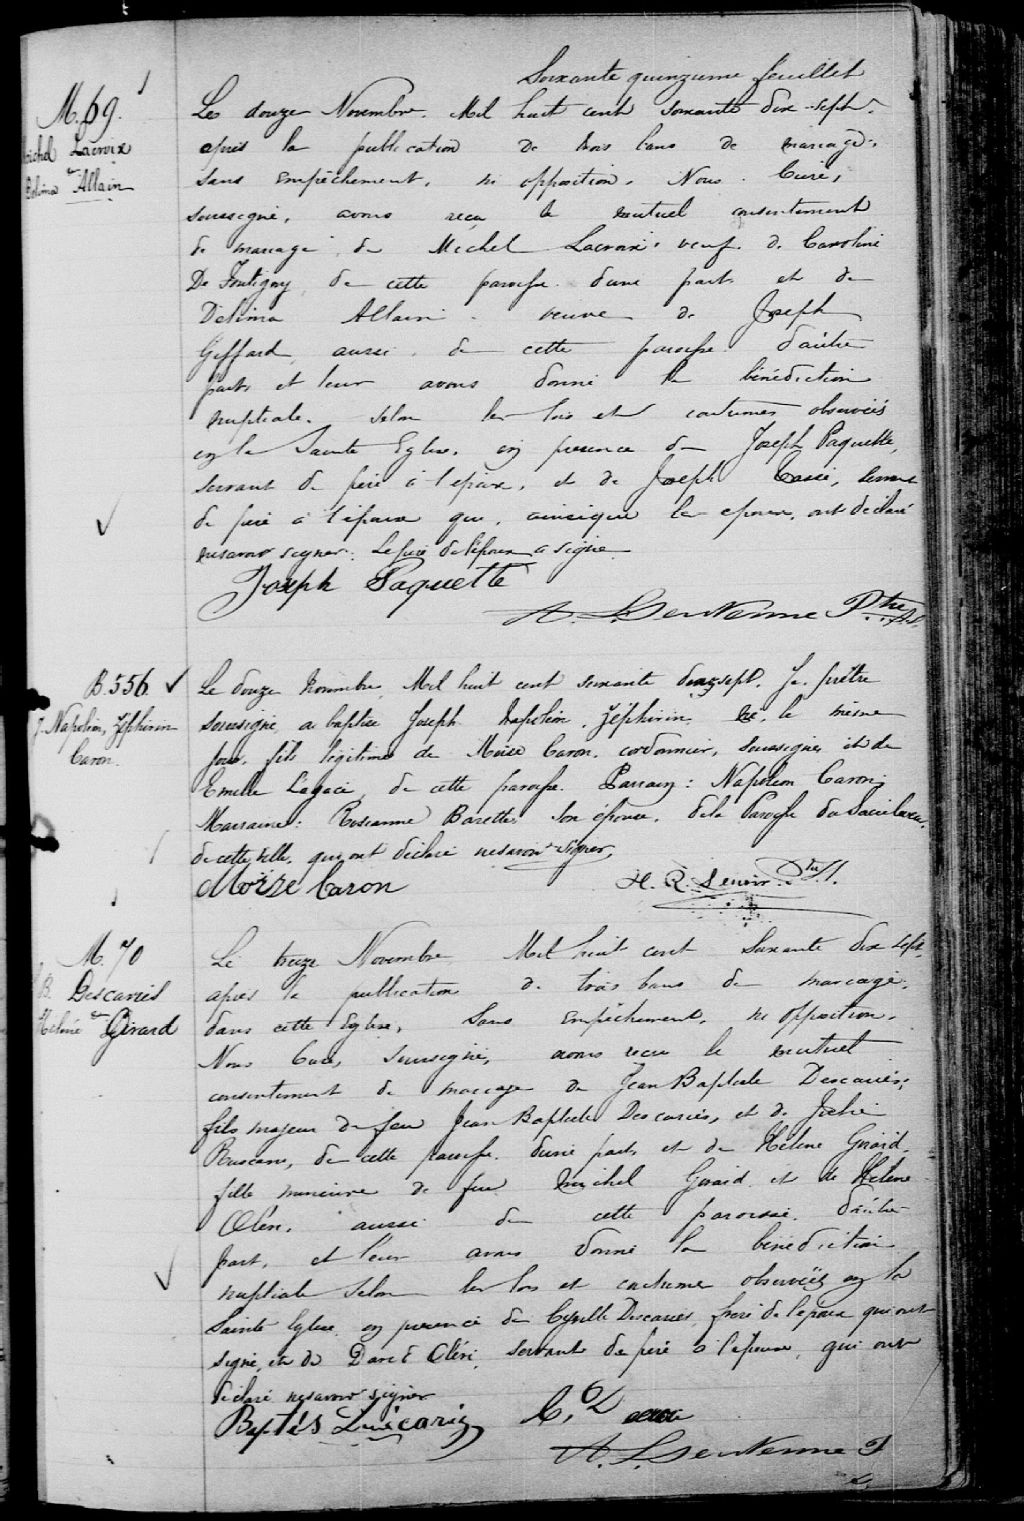 Soixante quinzieme feuillet
M. 69.
Michel Lacroix
&
Delima Allain
Le douze Novembre. Mil huit cent soixante dix-sept.
après la publication de trois bans de mariage,
sans empêchement, ni opposition. Nous Curé,
soussigné, avons reçu le mutuel consentement
de mariage de Michel Lacroix, veuf de Caroline
De Fontigny, de cette paroisse d'une part et de
Délima Allain veuve de Joseph
Giffard, aussi de cette paroisse d'autre
part, et leur avons donné la bénédiction
nuptiale, selon les lois et coutumes observées
en la Sainte Eglise, en presence de Joseph Paquette,
servant de père à l'époux, et de Joseph servant
de père à l'épouse qui, ainsique les epoux, ont déclaré
nesavoir signer. Le père de l'époux a signé
Joseph Paquette
Ptre
B. 556.
J. Napoléon, Zéphirin
Caron.
Le douze Novembre Mil huit cent soixante dix-sept. Je prêtre
soussigné, a baptisé Joseph Napoléon Zéphirin, né, le même
jour, fils légitime de Moïse Caron, cordonnier, soussigné et de
Emelie Lagacé, de cette paroisse. Parrain: Napoléon Caron;
Marraine: Roseanne Barette, son épouse, dela Paroisse du
de cette ville, qui ont déclaré nesavoir signer.
Moïze Caron
H. R. Lenoir Ptre
M. 70
J. B. Descaries
&
Helène Girard
Le treize Novembre Mil huit cent Soixante dix sept.
apres la publication de trois bans de mariage,
dans cette Eglise, sans empêchement, ni opposition,
Nous Curé, soussigné, avons reçu le mutuel
consentement de mariage de Jean Baptiste Descaries,
fils majeur de feu Jean Baptiste Descaries, et de Julie
de cette paroisse d'une part, et de Hélène Girard,
fille mineure de feu Michel Girard et de Hélène
Cléri, aussi de cette paroisse, d'autre
part, et leur avons donné la bénédiction
nuptiale selon les lois et coutume observées en la
Sainte Eglise en presence de Cyrille Descaries, frère de l'époux qui ont
signé, et de David Cléri, servant de père à l'épouse, qui ont
déclaré nesavoir signer
C. D